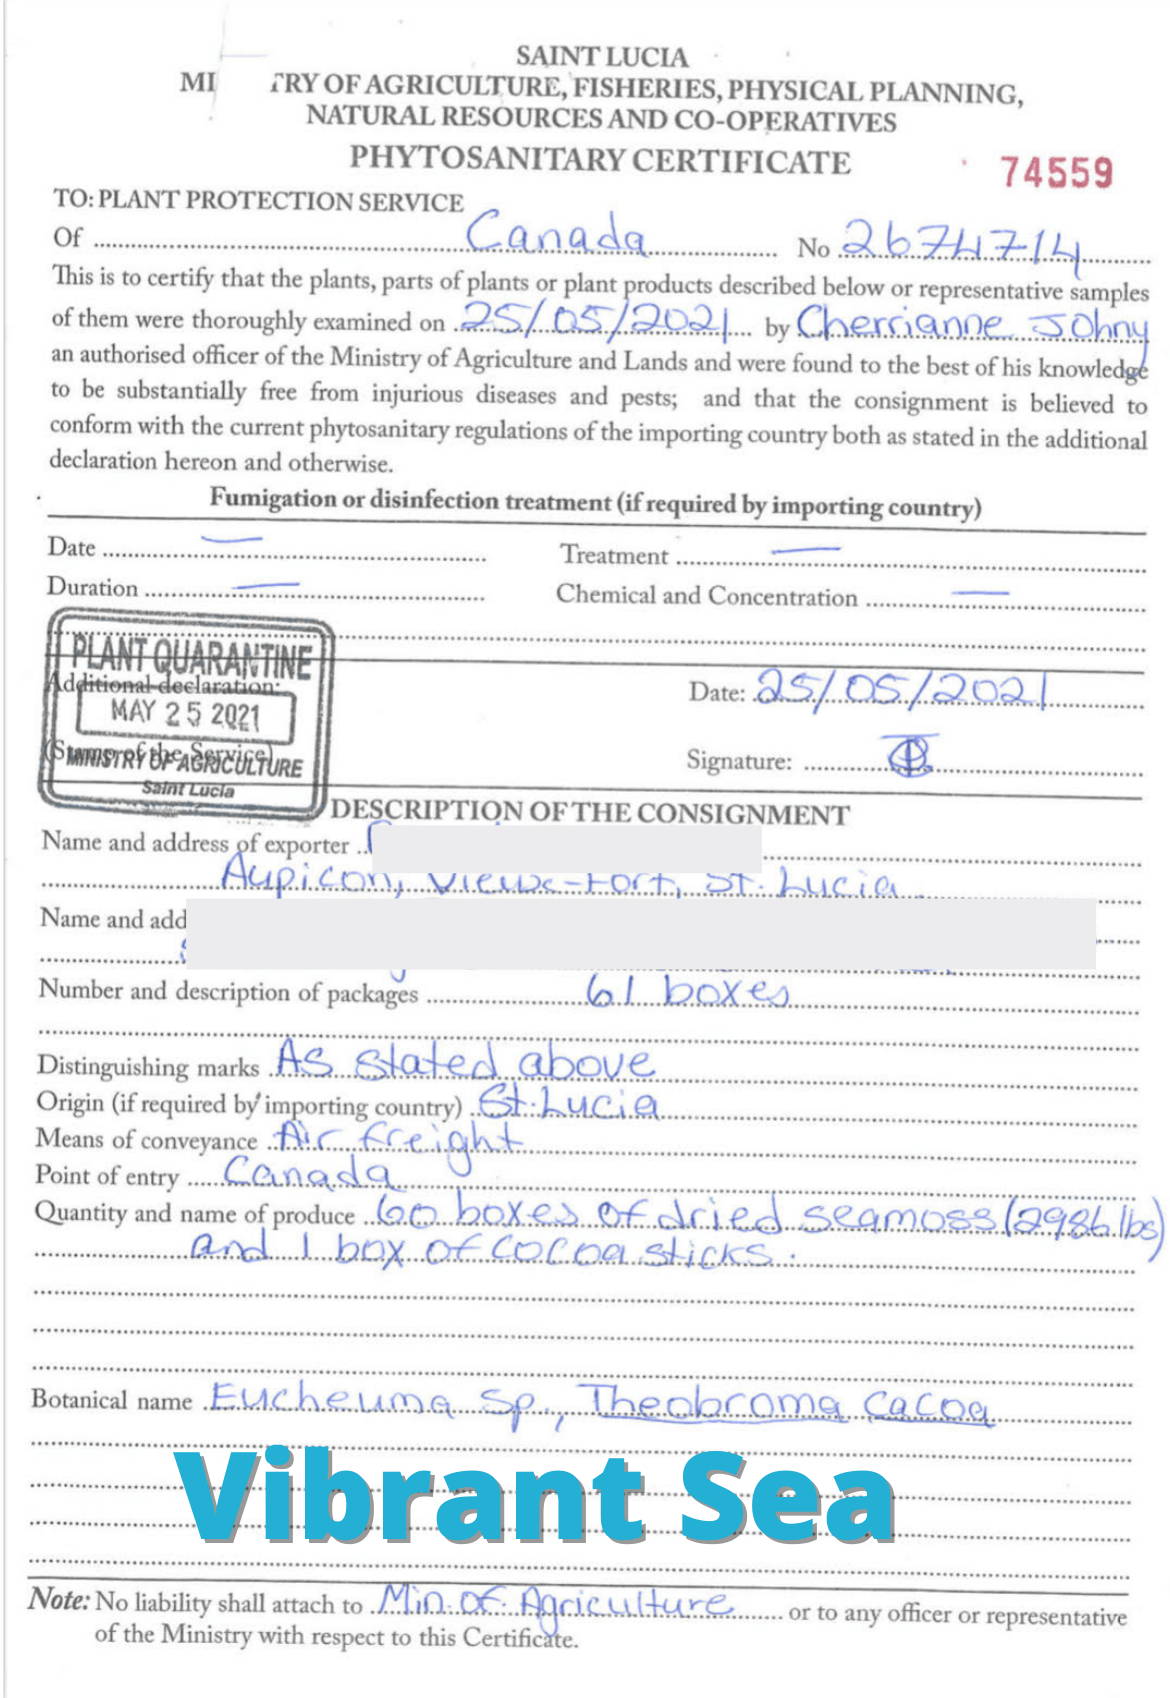 SAINT LUCIA
MI TRY OF AGRICULTURE, FISHERIES, PHYSICAL PLANNING,
NATURAL RESOURCES AND CO-OPERATIVES
PHYTOSANITARY CERTIFICATE
74559
TO: PLANT PROTECTION SERVICE
Of Canada No 2674714
This is to certify that the plants, parts of plants or plant products described below or representative samples
of them were thoroughly examined on 25/05/2021 by Cherrianne Johny
an authorised officer of the Ministry of Agriculture and Lands and were found to the best of his knowledge
to be substantially free from injurious diseases and pests; and that the consignment is believed to
conform with the current phytosanitary regulations of the importing country both as stated in the additional
declaration hereon and otherwise.
Fumigation or disinfection treatment (if required by importing country)
Date — Treatment —
Duration — Chemical and Concentration —
PLANT QUARANTINE
Additional declaration:
MAY 25 2021
(Stamp of the Service)
MINISTRY OF AGRICULTURE
Saint Lucia
Date: 25/05/2021
Signature:
DESCRIPTION OF THE CONSIGNMENT
Name and address of exporter
Aupicon, Vieux-Fort, St. Lucia
Name and add
Number and description of packages 61 boxes
Distinguishing marks As stated above
Origin (if required by importing country) St. Lucia
Means of conveyance Air freight
Point of entry Canada
Quantity and name of produce 60 boxes of dried seamoss (2986 lbs)
and 1 box of cocoa sticks.
Botanical name Eucheuma sp., Theobroma cacoa
Vibrant Sea
Note: No liability shall attach to Min. of Agriculture or to any officer or representative
of the Ministry with respect to this Certificate.